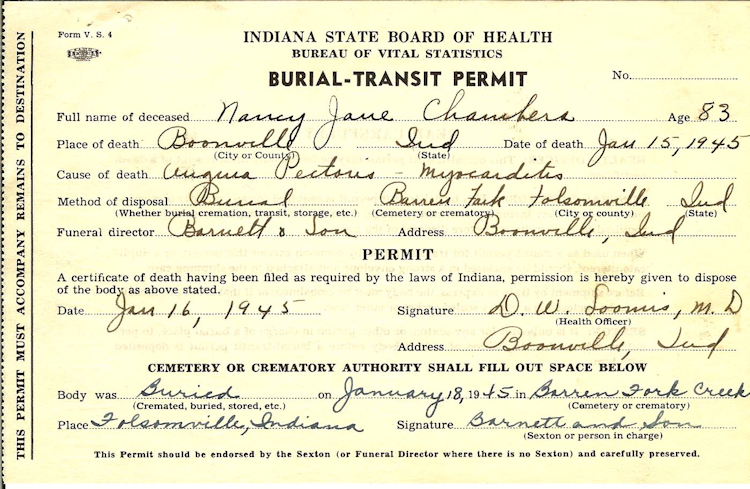 Form V. S. 4
INDIANA STATE BOARD OF HEALTH
BUREAU OF VITAL STATISTICS
BURIAL-TRANSIT PERMIT
No.
Full name of deceased Nancy Jane Chambers Age 83
Place of death Boonville Ind Date of death Jan 15, 1945
(City or County) (State)
Cause of death Angina Pectoris - Myocarditis
Method of disposal Burial Barren Fork Folsomville Ind
(Whether burial cremation, transit, storage, etc.) (Cemetery or crematory) (City or county) (State)
Funeral director Barnett & Son Address Boonville, Ind
PERMIT
A certificate of death having been filed as required by the laws of Indiana, permission is hereby given to dispose
of the body as above stated.
Date Jan 16, 1945 Signature D. W. Loomis, M. D
(Health Officer)
Address Boonville, Ind
CEMETERY OR CREMATORY AUTHORITY SHALL FILL OUT SPACE BELOW
Body was Buried on January 18, 1945 in Barren Fork Creek
(Cremated, buried, stored, etc.) (Cemetery or crematory)
Place Folsomville, Indiana Signature Barnett and Son
(Sexton or person in charge)
This Permit should be endorsed by the Sexton (or Funeral Director where there is no Sexton) and carefully preserved.
THIS PERMIT MUST ACCOMPANY REMAINS TO DESTINATION